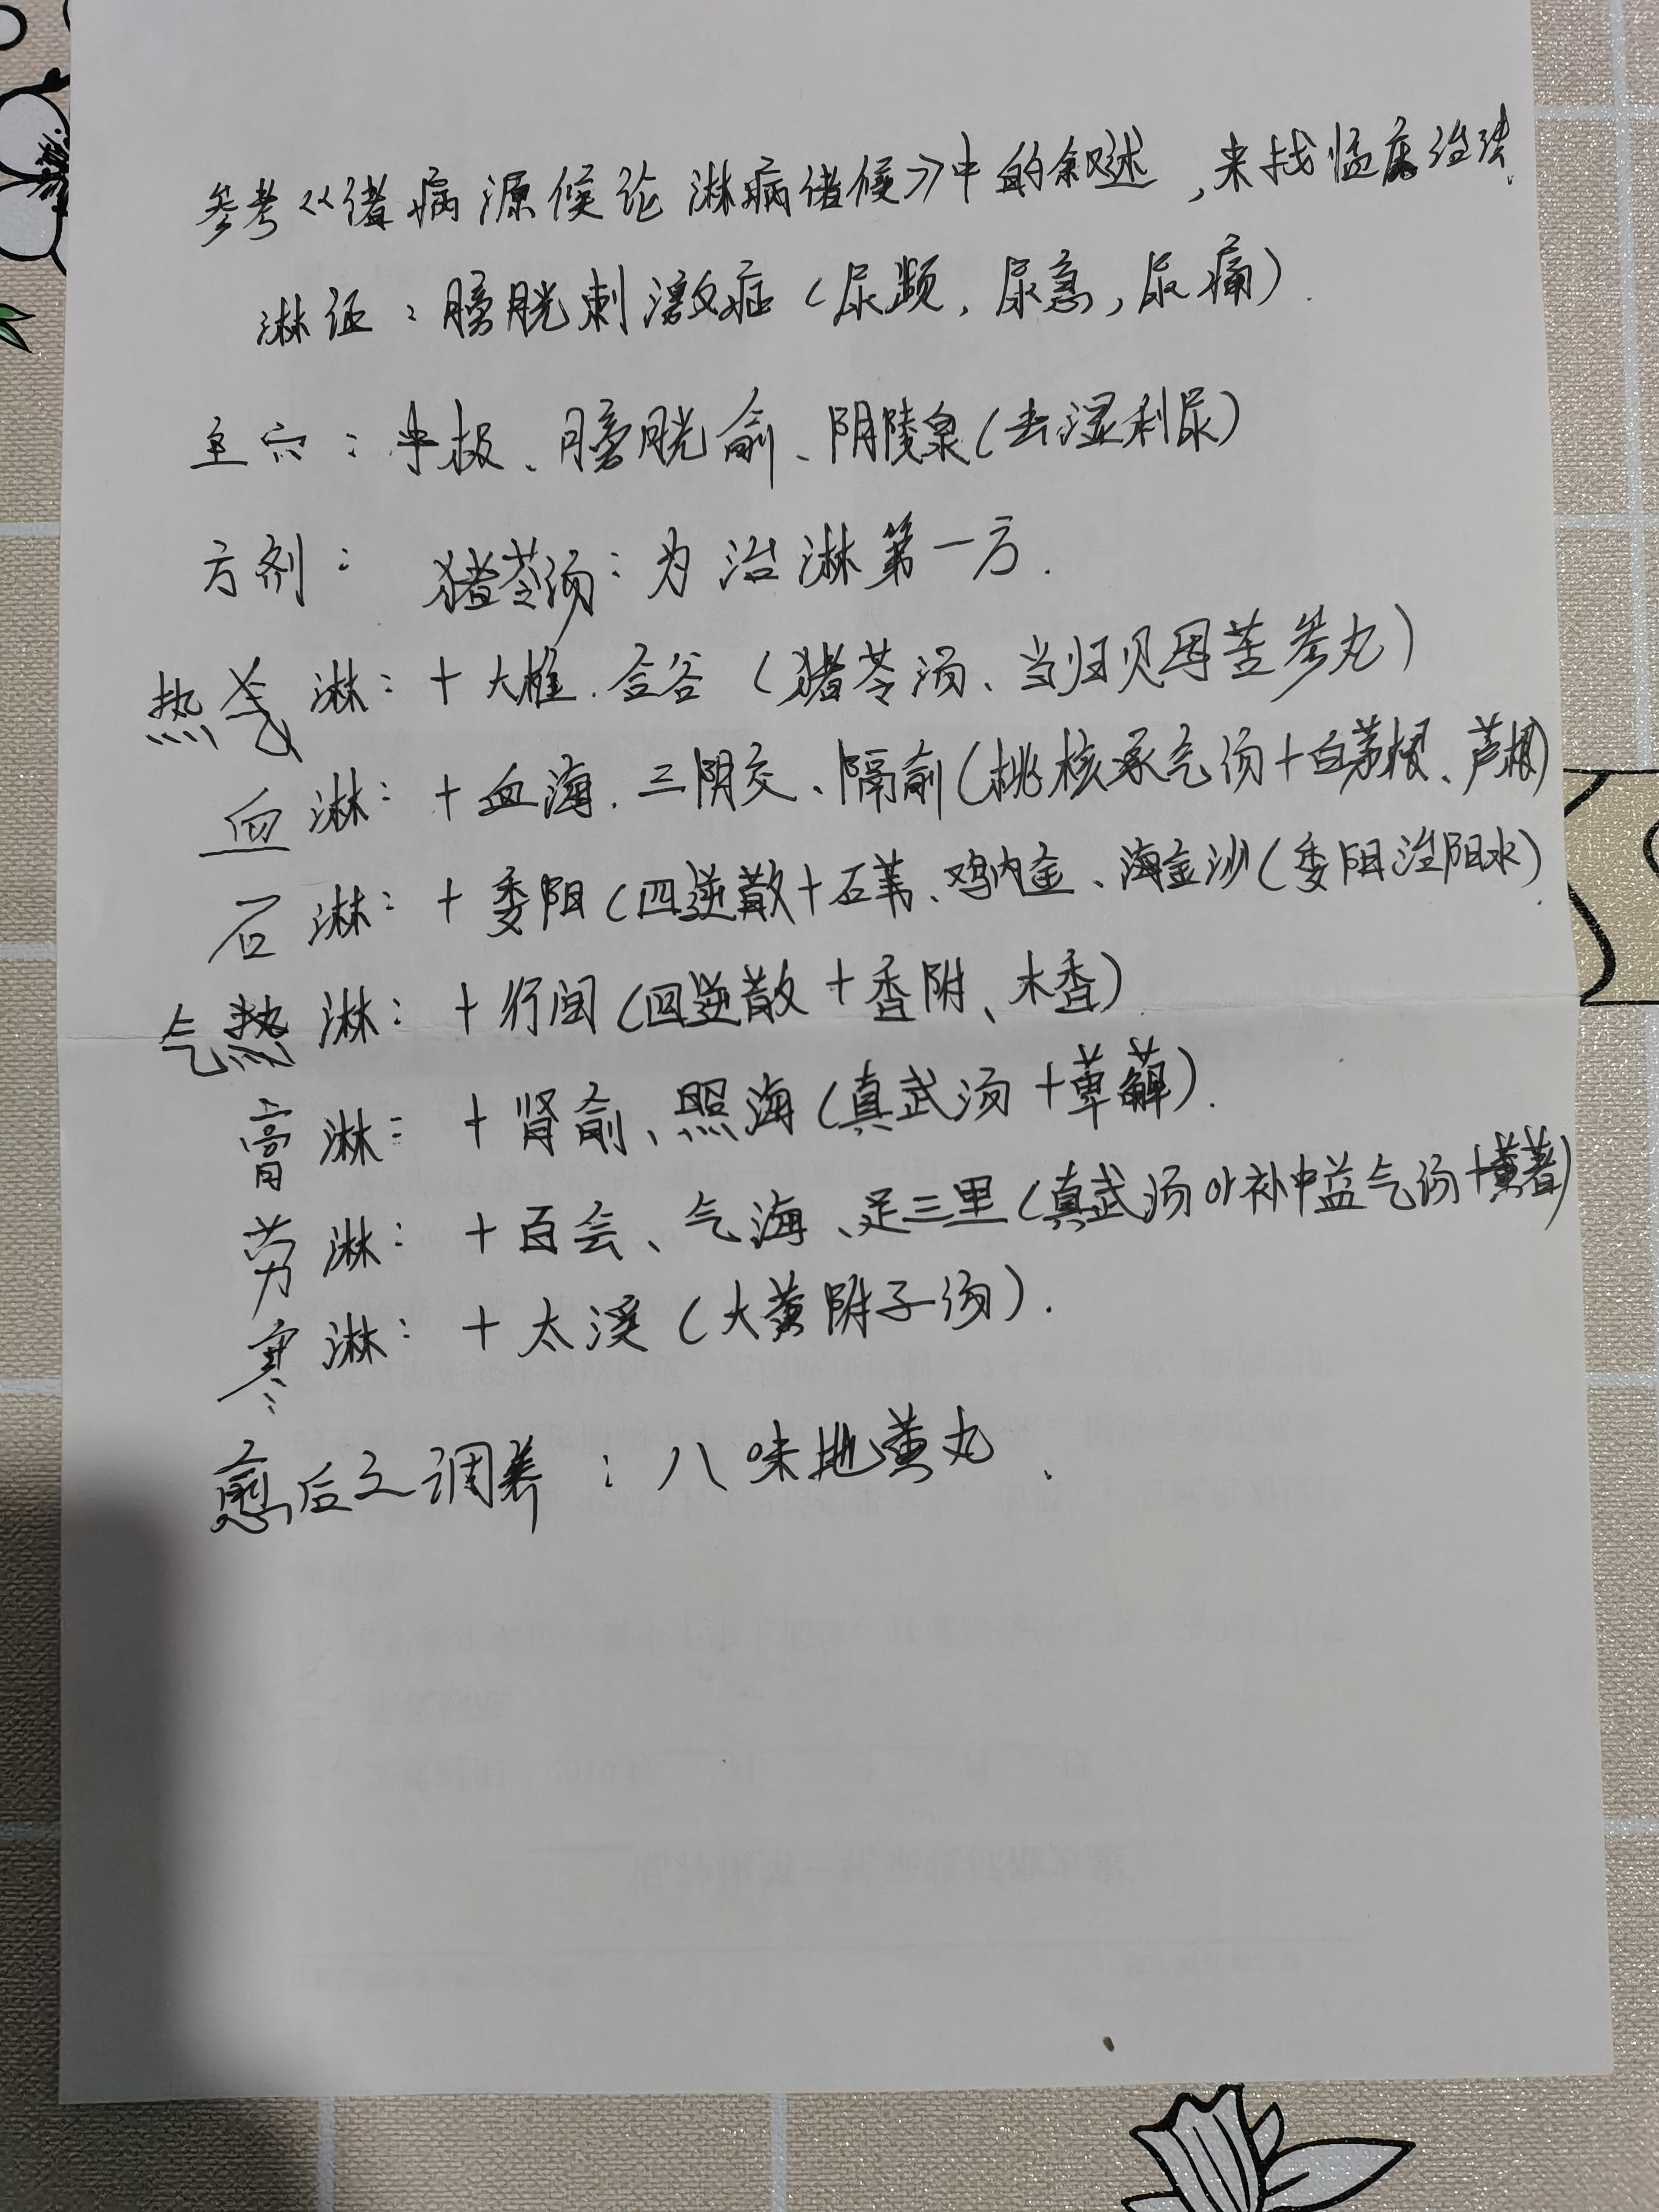 参考《诸病源候论 淋病诸候》中的叙述,来找临床治法.
淋证:膀胱刺激症(尿频,尿急,尿痛).
主穴:中极、膀胱俞、阴陵泉(去湿利尿)
方剂: 猪苓汤:为治淋第一方.
热淋:+大椎.合谷(猪苓汤、当归贝母苦参丸)
血淋:+血海.三阴交、隔俞(桃核承气汤+白茅根、芦根)
石淋:+委阳(四逆散+石苇、鸡内金、海金沙(委阳治阳水).
气淋:+行间(四逆散+香附、木香).
膏淋:+肾俞、照海(真武汤+萆薢).
劳淋:+百会、气海、足三里(真武汤or补中益气汤+黄蓍)
寒淋:+太溪(大黄附子汤).
愈后之调养:八味地黄丸.